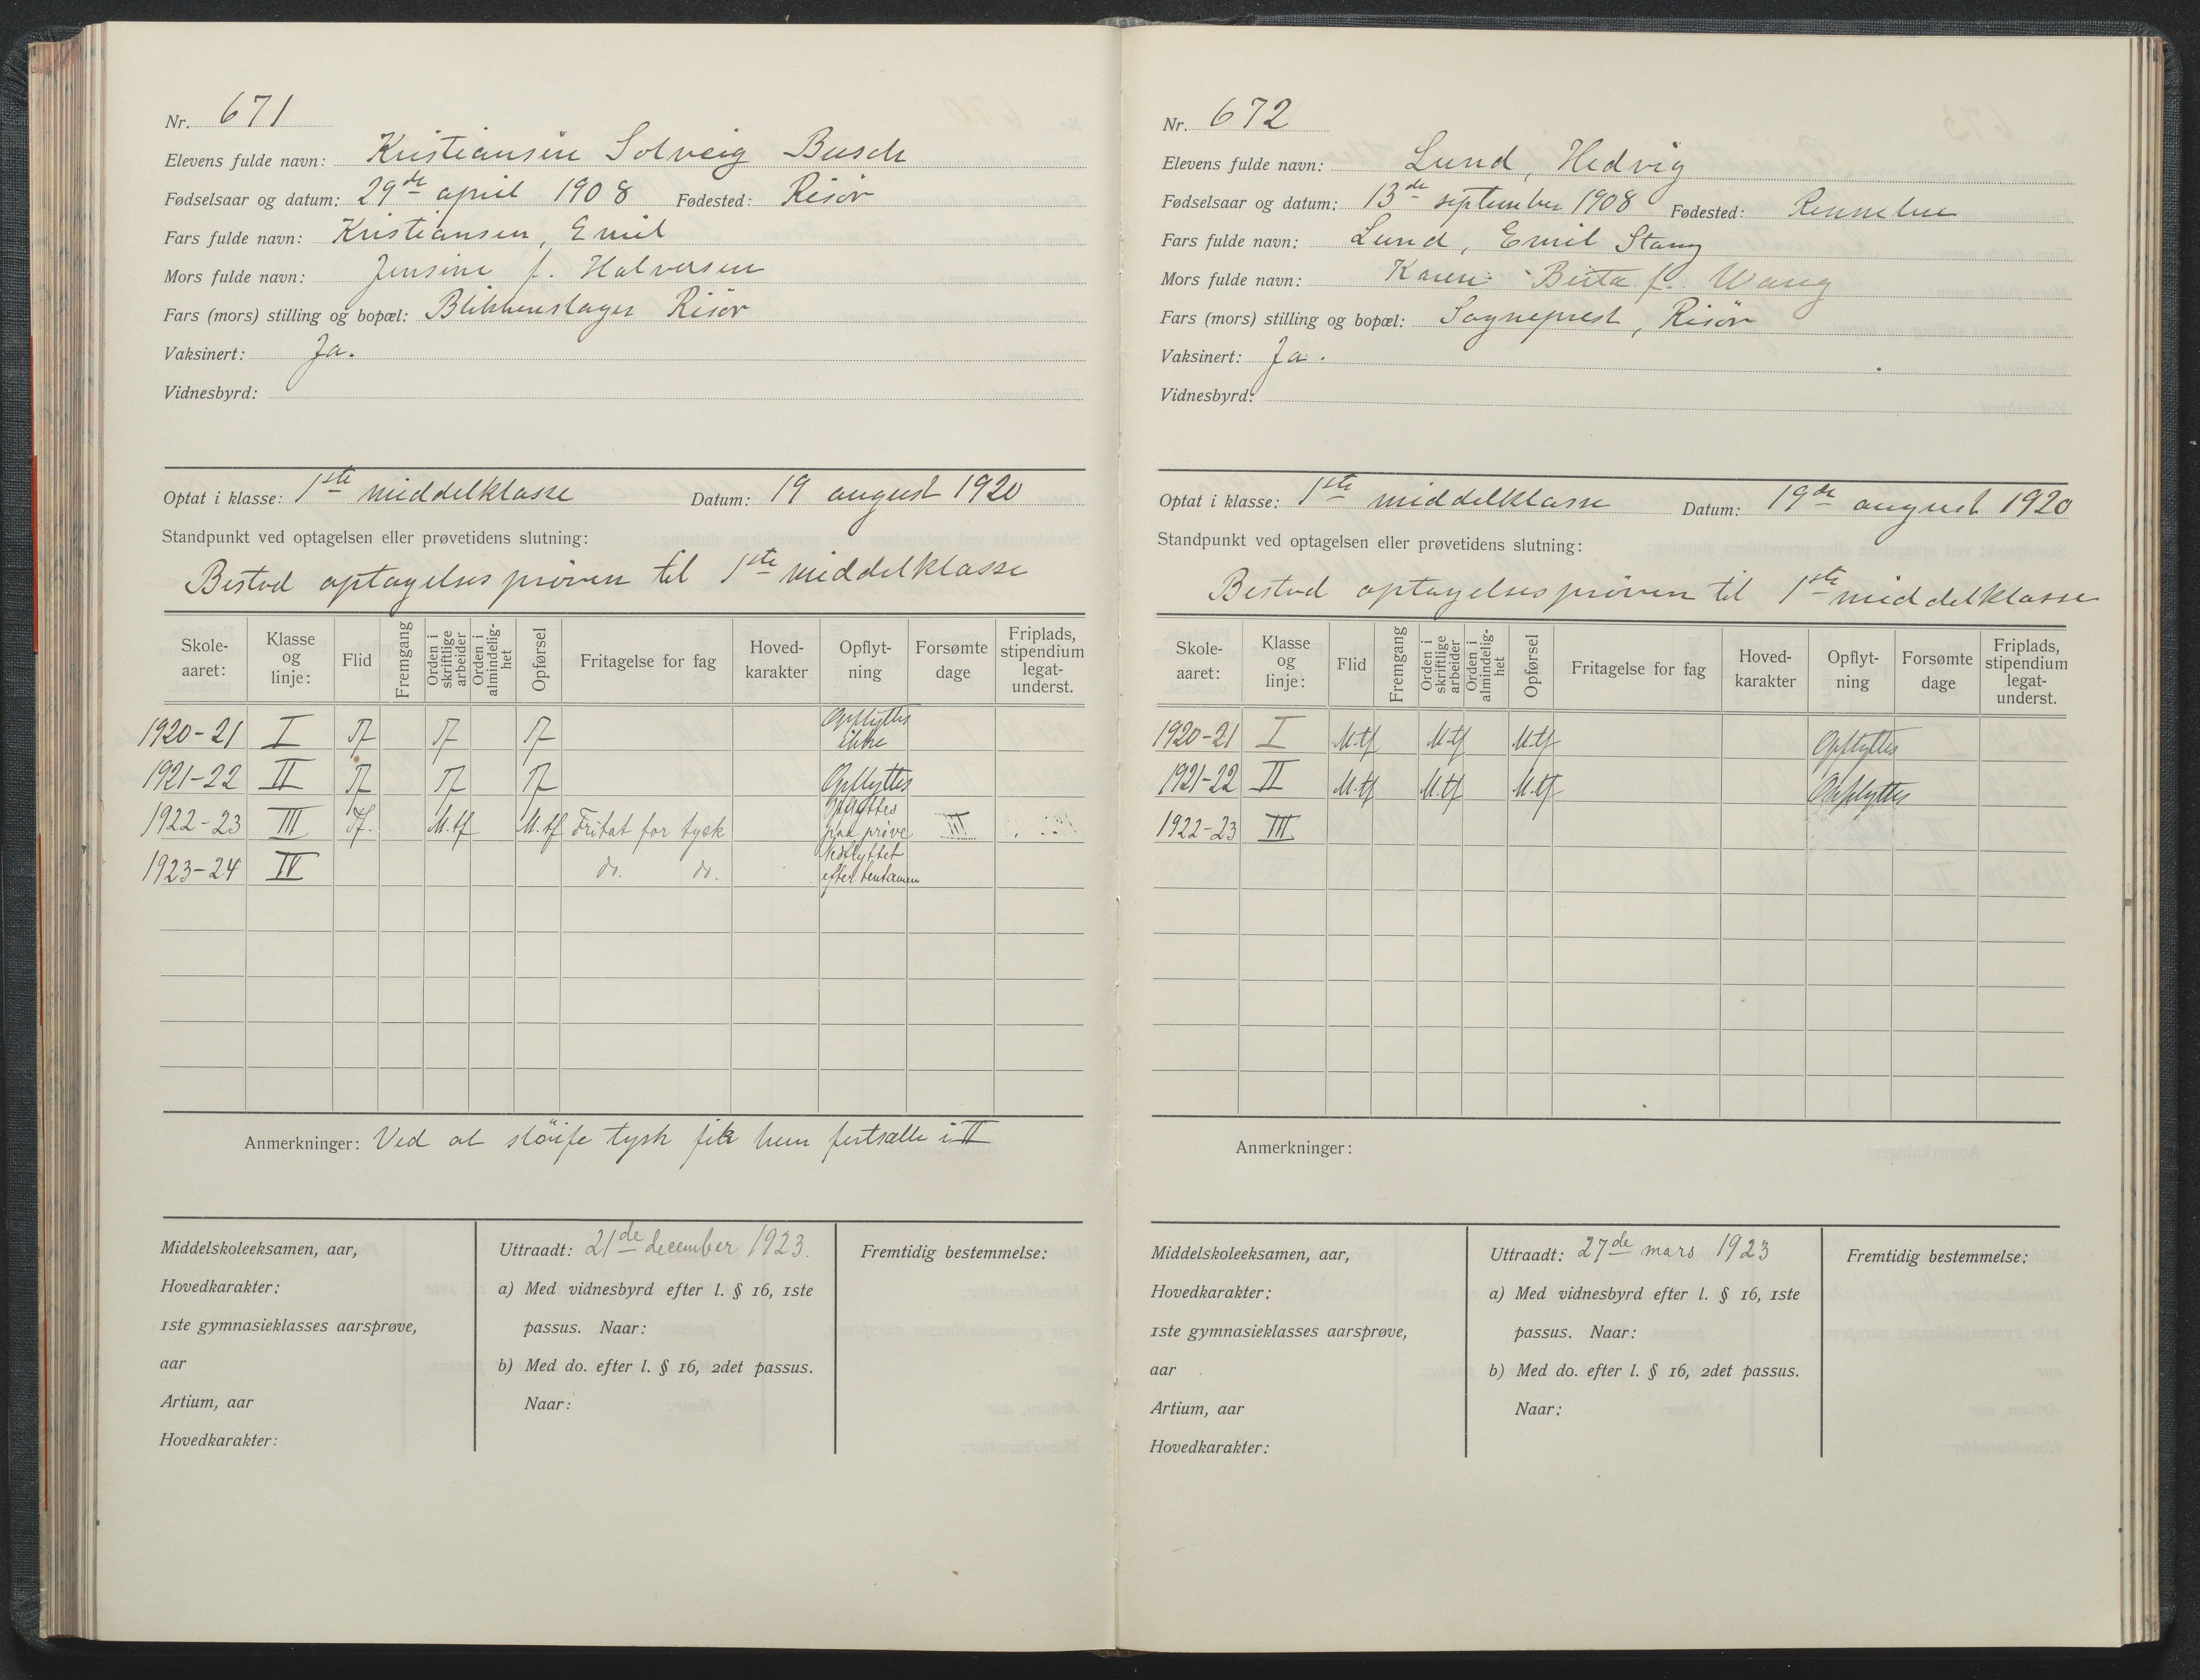 Nr. 671
Elevens fulde navn: Kristiansen Solveig Busch
Fødselsaar og datum: 29de april 1908 Fødested: Risör
Fars fulde navn: Kristiansen, Emil
Mors fulde navn: Jensine f. Halversen
Fars (mors) stilling og bopæl: Blikkenslager Risör
Vaksinert: Ja.
Vidnesbyrd:
Optat i klasse: 1ste middelklasse Datum: 19 august 1920
Standpunkt ved optagelsen eller prøvetidens slutning:
Bestod optagelsesprøven til 1ste middelklasse
Skole-aaret: Klasse og linje: Flid Fremgang Orden i skriftlige arbeider Orden i almindelig-het Opførsel Fritagelse for fag Hoved-karakter Opflyt-ning Forsømte dage Friplads, stipendium legat-underst.
1920-21 I Tf Tf Tf Opflyttes ikke
1921-22 II Tf Tf Tf Opflyttes
1922-23 III Tf. M.tf M.tf Fritat for tysk Opflyttes paa prøve III
1923-24 IV do. do. Nedflyttet efter tentamen
Anmerkninger: Ved at sløife tysk fik hun fortsætte i II
Middelskoleeksamen, aar,
Hovedkarakter:
1ste gymnasieklasses aarsprøve,
aar
Artium, aar
Hovedkarakter:
Uttraadt: 21de december 1923.
a) Med vidnesbyrd efter l. § 16, 1ste
passus. Naar:
b) Med do. efter l. § 16, 2det passus.
Naar:
Fremtidig bestemmelse:
Nr. 672
Elevens fulde navn: Lund, Hedvig
Fødselsaar og datum: 13de september 1908 Fødested: Rennebu
Fars fulde navn: Lund, Emil Stang
Mors fulde navn: Karen Berta f. Wang
Fars (mors) stilling og bopæl: Sogneprest, Risör
Vaksinert: Ja.
Vidnesbyrd:
Optat i klasse: 1ste middelklasse Datum: 19de august 1920
Standpunkt ved optagelsen eller prøvetidens slutning:
Bestod optagelsesprøven til 1ste middelklasse
Skole-aaret: Klasse og linje: Flid Fremgang Orden i skriftlige arbeider Orden i almindelig-het Opførsel Fritagelse for fag Hoved-karakter Opflyt-ning Forsømte dage Friplads, stipendium legat-underst.
1920-21 I M.tf M.tf M.tf Opflyttes
1921-22 II M.tf M.tf M.tf Opflyttes
1922-23 III
Anmerkninger:
Middelskoleeksamen, aar,
Hovedkarakter:
1ste gymnasieklasses aarsprøve,
aar
Artium, aar
Hovedkarakter:
Uttraadt: 27de mars 1923
a) Med vidnesbyrd efter l. § 16, 1ste
passus. Naar:
b) Med do. efter l. § 16, 2det passus.
Naar:
Fremtidig bestemmelse: